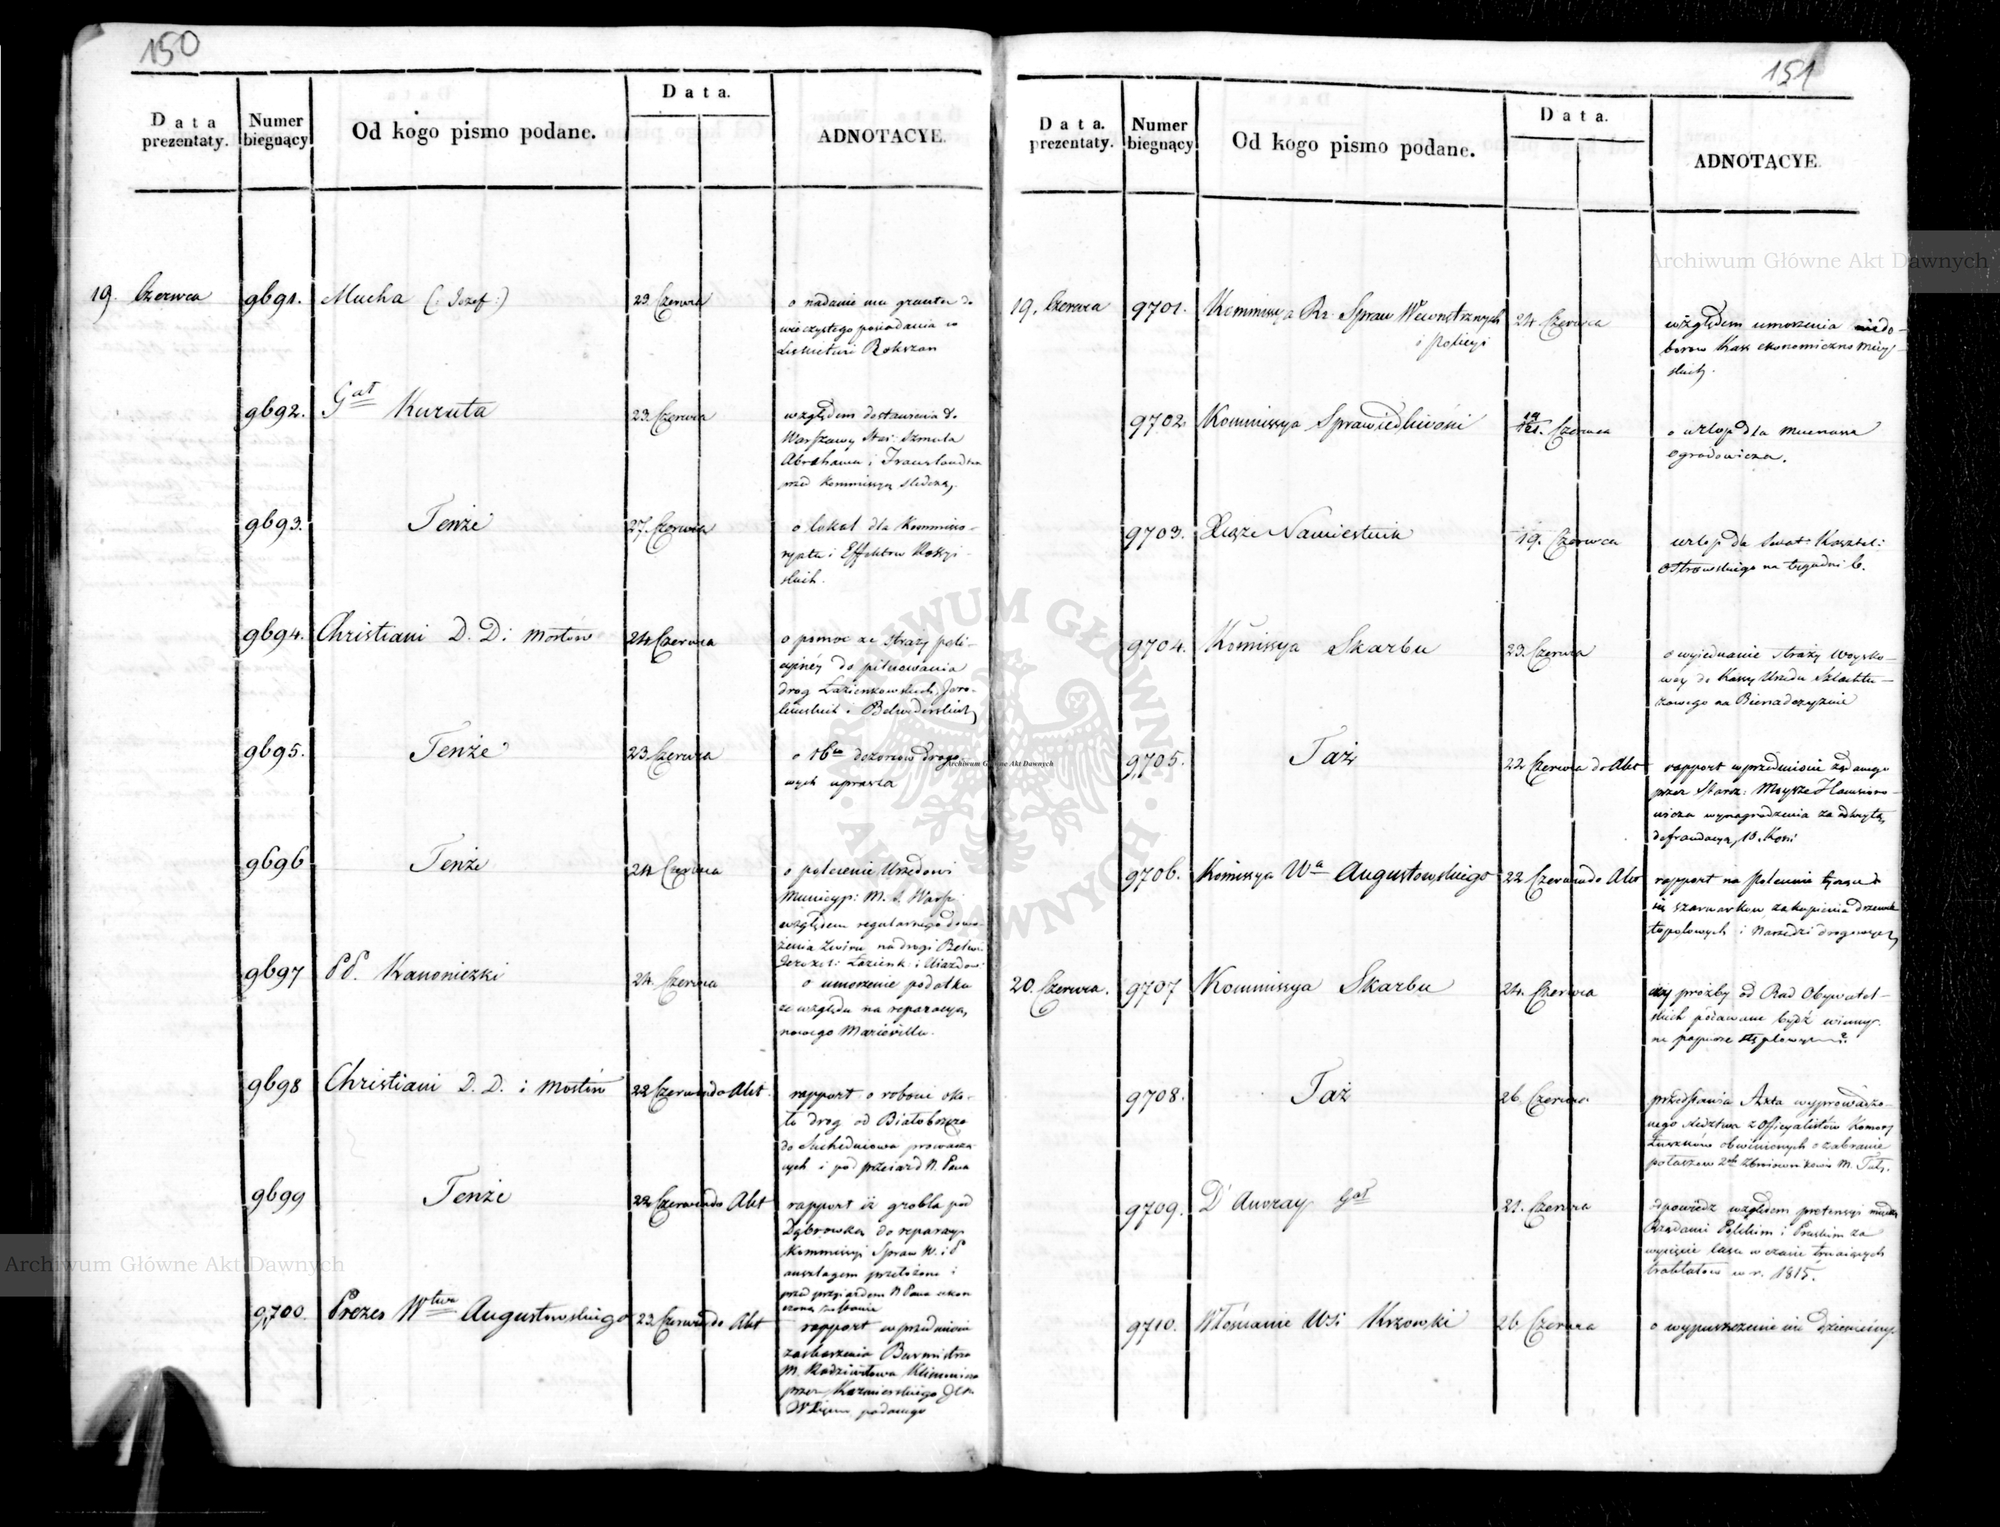 150
Data prezentaty.
Numer biegnący
Od kogo pismo podane.
Data.
ADNOTACYE.
19. Czerwca 9691. Mucha (: Jozef :) 23 Czerwca o nadanie mu gruntu do
wieczystego posiadania w
9692. Gał Kuruta 23. Czerwca względem dostawienia do
Warszawy Star: Szmula
Abrahama i
przed Kommissyą śledczą.
9693. Tenże 27. Czerwca o lokal dla Kommisso-
ryatu i Effektow Rossyi-
skich.
9694. Christiani D. D: i mostów 24 Czerwca o pomoc ze straży poli-
cyjnéy do pilnowania
drog Łazienkowskich, Jero-
limskich i Belwederskich
9695. Tenże 23 Czerwca o 16tu dozorców drogo-
wych uprasza
9696 Tenże 24 Czerwca o polecenie Urzędowi
Municyp: M. S. Warsz:
względem regularnego dowo-
żenia żwiru na drogi Belwe:
Jerozol: Łazienk: i Ujazdow:
9697 PP. Kanoniczki 24. Czerwca o umorzenie podatku
ze względu na reparacyą
nowego Marievillu.
9698 Christiani D. D. i mostów 22 Czerwca do Akt rapport o robocie oko-
ło drog od Białobrzeg
do Suchedniowa prowadzą-
cych i pod przejazd N. Pana
9699 Tenże 22 Czerwca do Akt rapport iż grobla pod
Dąbrowką do reparacyi
Kommissyi Spraw W. i P.
anszlagem przełożona i
przed przyjazdem N Pana ukoń-
czoną zostanie
9700. Prezes Wtwa Augustowskiego 23. Czerwca do Akt rapport w przedmiocie
zaskarżenia Burmistrza
M. Radziwiłowa
przez Kazmierskiego
podanego
151
Data. prezentaty.
Numer biegnący
Od kogo pismo podane.
Data.
ADNOTACYE.
19. Czerwca 9701. Kommissya Rz. Spraw Wewnętrznych
i Policyi 24 Czerwca względem umorzenia niedo-
borow Kass ekonomiczno Miey-
skich.
9702. Kommissya Sprawiedliwości Czerwca o urlop dla
Ogrodowicza.
9703. Xiąże Namiestnik 19. Czerwca urlop dla Senat: Kasztel:
Ostrowskiego na tygodni 6.
9704. Komissya Skarbu 23. Czerwca o wyjednanie straży Woysko-
wey do Kassy Urzędu
na
9705. Taż 22 Czerwca do Akt rapport w przedmiocie żądanego
przez Starz: Moysze
wynagrodzenia za odkrytą
defraudacyą
9706. Komissya Wa Augustowskiego 22 Czerwca do Akt rapport na polecenie
się szarwarkow, zakupienia drzewek
topolowych i Narzędzi drogowych
20. Czerwca. 9707 Kommissya Skarbu 24. Czerwca czy prózby od Rad Obywatel-
skich podawane bydź winny
na papierze stęplowym?
9708. Taż 26. Czerwca. przedstawia Akta wyprowadzo-
nego śledztwa z Officyalistów Komory
obwinionych o zabranie
9709. D'Auvray Gał 21. Czerwca odpowiedz względem pretensyi między
Rządami Polskim i Pruskim za
wycięcie lasu w czasie trwaiących
traktatow w r. 1815.
9710. Włościanie Wsi Krzowski 26 Czerwca o wypuszczenie im dziesięciny.
Archiwum Główne Akt Dawnych
Archiwum Główne Akt Dawnych
Archiwum Główne Akt Dawnych
ARCHIWUM GŁÓWNE AKT DAWNYCH